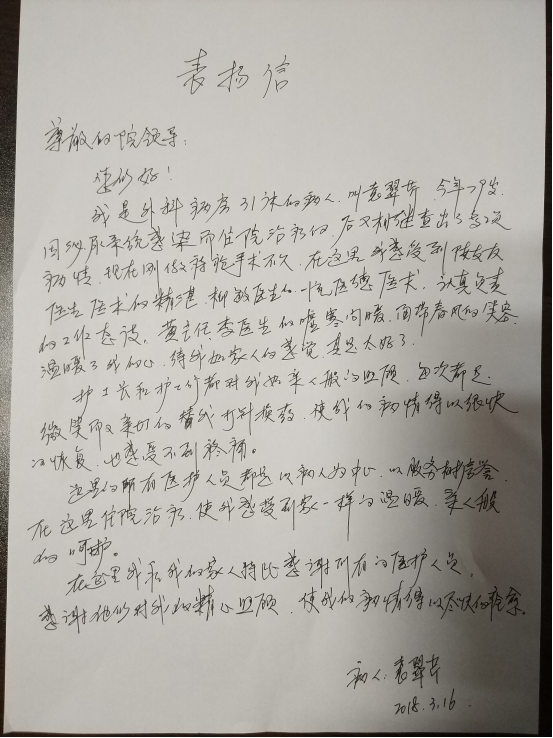 表扬信
尊敬的院领导:
您们好!
我是外科病房31床的病人,叫袁翠芹,今年79岁
因泌尿系统感染而住院治疗的,后又相继查出了多项
病情,现在刚做符疮手术不久,在这里我感受到陈友友
医生医术的精湛,柳敏医生的一流医德医术,认真负责
的工作态度,黄主任李医生的嘘寒问暖,面带春风的笑容
温暖了我的心,待我如家人的感觉真是太好了。
护士长和护士们都对我如亲人般的照顾,每次都是
微笑而又亲切的替我打针换药,使我的病情得以很快
的恢复,也感受不到疼痛。
这里的所有医护人员都是以病人为中心,以服务树信誉,
在这里住院治病,使我感受到家一样的温暖,亲人般
的呵护。
在这里我和我的家人特此感谢所有的医护人员,
感谢他们对我的精心照顾,使我的病情得以尽快的痊愈。
病人:袁翠芹
2018.3.16.